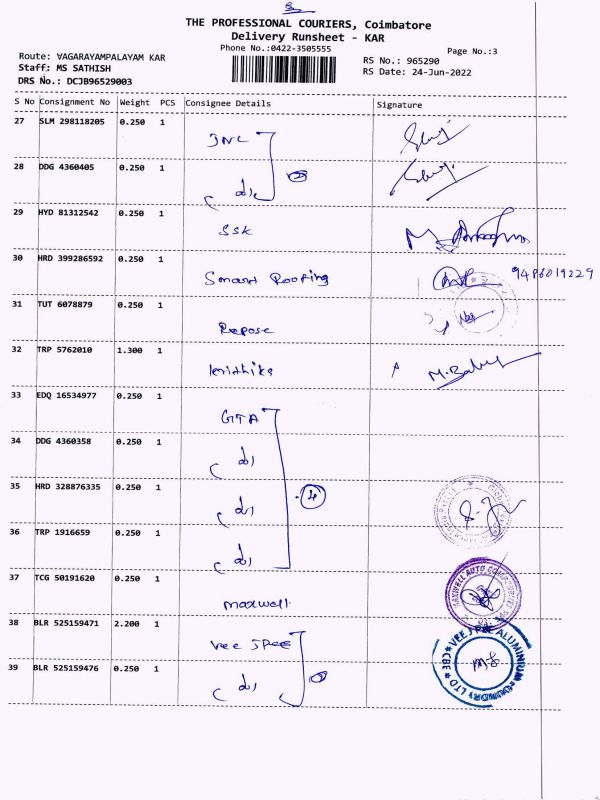 THE PROFESSIONAL COURIERS, Coimbatore
Delivery Runsheet - KAR
Phone No.:0422-3505555
Page No.:3
Route: VAGARAYAMPALAYAM KAR
RS No.: 965290
Staff: MS SATHISH
RS Date: 24-Jun-2022
DRS No.: DCJB96529003
S No Consignment No Weight PCS Consignee Details Signature
27 SLM 298118205 0.250 1
JNC
28 DDG 4360405 0.250 1
29 HYD 81312542 0.250 1
SSK
30 HRD 399286592 0.250 1
Smart Roofing 9486019229
31 TUT 6078879 0.250 1
Repose
32 TRP 5762010 1.300 1
M. Babu
33 EDQ 16534977 0.250 1
GTA
34 DDG 4360358 0.250 1
35 HRD 328876335 0.250 1
4
36 TRP 1916659 0.250 1
37 TCG 50191620 0.250 1
maxwell
MAXWELL AUTO COMPONENTS
38 BLR 525159471 2.200 1
Vee Jpee
VEE JPEE ALUMINIUM FOUNDRY LTD CBE
39 BLR 525159476 0.250 1